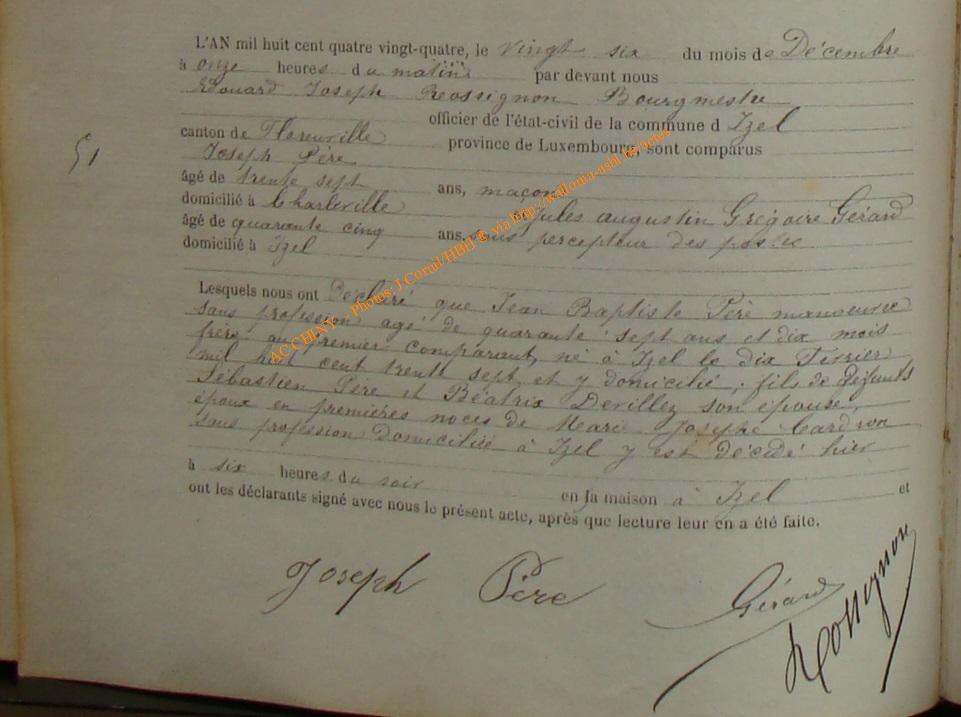 L'AN mil huit cent quatre vingt-quatre, le vingt six du mois de Décembre
à onze heures du matin par devant nous
Edouard Joseph Rossignon Bourgmestre
officier de l'état-civil de la commune d Izel
canton de Florenville province de Luxembourg, sont comparus
Joseph Père
51
âgé de trente sept ans, maçon
domicilié à Charleville Jules augustin Grégoire Gérard
âgé de quarante cinq ans, sous percepteur des postes
domicilié à Izel
Lesquels nous ont Déclaré que Jean Baptiste Père manoeuvre
sans profession agé de quarante sept ans et dix mois
frère au premier comparant, né à Izel le dix Février
mil huit cent trente sept et y domicilié, fils de défunts
Sébastien Père et Béatrix Devillez son épouse,
époux en premières noces de Marie Josèphe Cardron
sans profession domiciliée à Izel y est décédé hier
à six heures du soir en sa maison à Izel et
ont les déclarants signé avec nous le présent acte, après que lecture leur en a été faite.
Joseph Père Gérard Rossignon
ACCHINY - Photos: J.Cornil/HBH © via http://wallonia-asbl.be/actes